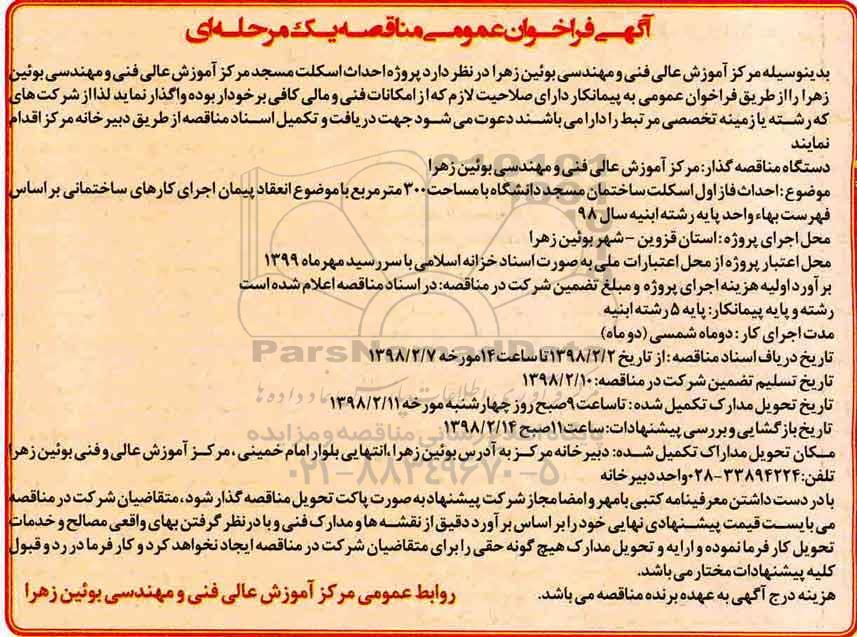 آگهی فراخوان عمومی مناقصه یک مرحله‌ای
بدینوسیله مرکز آموزش عالی فنی و مهندسی بوئین زهرا در نظر دارد پروژه احداث اسکلت مسجد مرکز آموزش عالی فنی و مهندسی بوئین
زهرا را از طریق فراخوان عمومی به پیمانکار دارای صلاحیت لازم که از امکانات فنی و مالی کافی برخودار بوده واگذار نماید لذا از شرکت های
که رشته یا زمینه تخصصی مرتبط را دارا می باشند دعوت می شود جهت دریافت و تکمیل اسناد مناقصه از طریق دبیرخانه مرکز اقدام
نمایند
دستگاه مناقصه گذار: مرکز آموزش عالی فنی و مهندسی بوئین زهرا
موضوع: احداث فاز اول اسکلت ساختمان مسجد دانشگاه با مساحت ۳۰۰ متر مربع با موضوع انعقاد پیمان اجرای کارهای ساختمانی بر اساس
فهرست بهاء واحد پایه رشته ابنیه سال ۹۸
محل اجرای پروژه: استان قزوین - شهر بوئین زهرا
محل اعتبار پروژه از محل اعتبارات ملی به صورت اسناد خزانه اسلامی با سررسید مهرماه ۱۳۹۹
برآورد اولیه هزینه اجرای پروژه و مبلغ تضمین شرکت در مناقصه: در اسناد مناقصه اعلام شده است
رشته و پایه پیمانکار: پایه ۵ رشته ابنیه
مدت اجرای کار: دوماه شمسی (دو ماه)
تاریخ دریاف اسناد مناقصه: از تاریخ ۱۳۹۸/۲/۲ تا ساعت ۱۴ مورخه ۱۳۹۸/۲/۷
تاریخ تسلیم تضمین شرکت در مناقصه: ۱۳۹۸/۲/۱۰
تاریخ تحویل مدارک تکمیل شده: تا ساعت ۹ صبح روز چهارشنبه مورخه ۱۳۹۸/۲/۱۱
تاریخ بازگشایی و بررسی پیشنهادات: ساعت ۱۱ صبح ۱۳۹۸/۲/۱۴
مکان تحویل مداراک تکمیل شده: دبیرخانه مرکز به آدرس بوئین زهرا، انتهایی بلوار امام خمینی، مرکز آموزش عالی و فنی بوئین زهرا
تلفن: ۳۳۸۹۴۲۲۴-۰۲۸ واحد دبیرخانه
با در دست داشتن معرفینامه کتبی با مهر و امضا مجاز شرکت پیشنهاد به صورت پاکت تحویل مناقصه گذار شود، متقاضیان شرکت در مناقصه
می بایست قیمت پیشنهادی نهایی خود را بر اساس برآورد دقیق از نقشه ها و مدارک فنی و با در نظر گرفتن بهای واقعی مصالح و خدمات
تحویل کارفرما نموده و ارایه و تحویل مدارک هیچ گونه حقی را برای متقاضیان شرکت در مناقصه ایجاد نخواهد کرد و کارفرما در رد و قبول
کلیه پیشنهادات مختار می باشد.
هزینه درج آگهی به عهده برنده مناقصه می باشد.
روابط عمومی مرکز آموزش عالی فنی و مهندسی بوئین زهرا
ParsNamadData
پایگاه اطلاع رسانی مناقصه و مزایده
۰۲۱-۸۸۳۴۹۶۷۰-۵